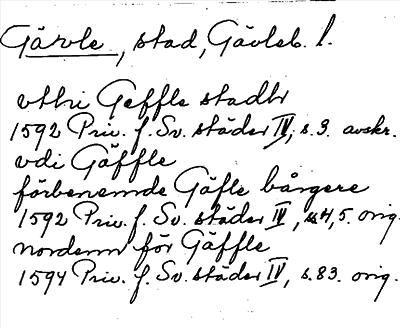 Gävle, stad, Gävleb. l.
vtthi Geffle stadh
1592 Priv. f. Sv. städer IV, s. 3. avskr.
vdi Gäffle
förbenemde Gäfle bårgere
1592 Priv. f. Sv. städer IV, s. 4, 5. orig.
nordenn för Gäffle
1594 Priv. f. Sv. städer IV, s. 83. orig.